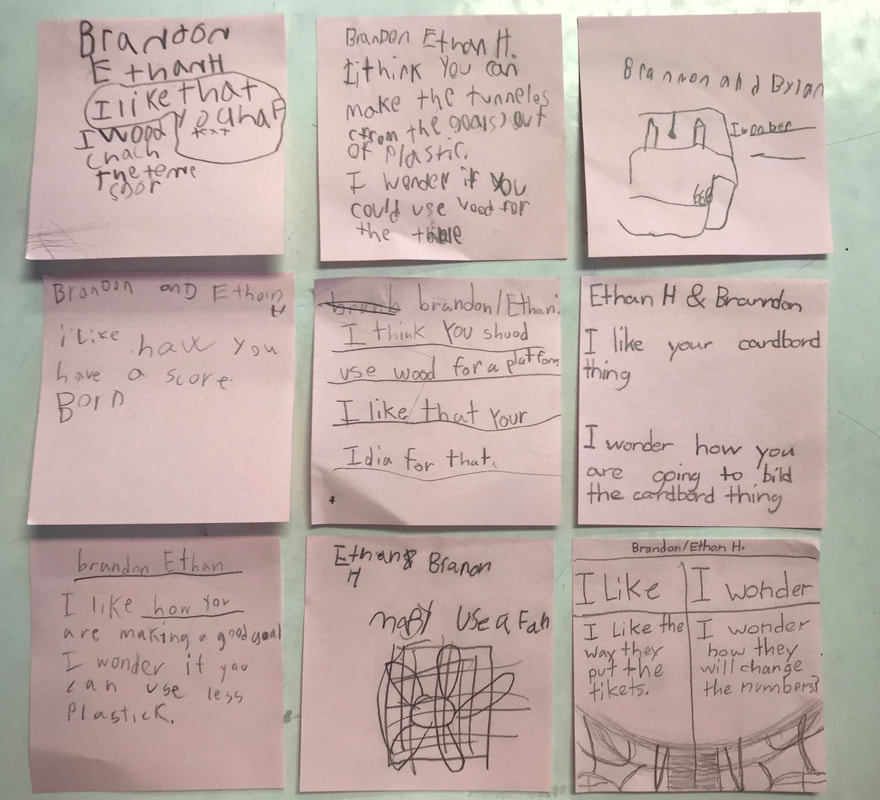 Brandon
EthanH
I like that
you haf
text
I wood
chach
the teme
Brandon Ethan H.
I think You can
make the tunneles
(from the goals) out
of plastic.
I wonder if you
could use wood for
the
Brannon and Dylan
I wonber
Brandon anD Ethan
H
i like how you
have a score
BorD
brandon/Ethan.
I think You shuod
use wood for a platform
I like that Your
Idia for that.
Ethan H & Branndon
I like your cardbord
thing
I wonder how you
are going to bild
the cardbord thing
brandon Ethan
I like how you
are making a good goal
I wonder if you
can use less
Plastick.
Ethan & Branon
H
maby use a Fan
Brandon/Ethan H.
I Like
I Like the
way they
put the
tikets.
I wonder
I wonder
how they
will change
the numbers?